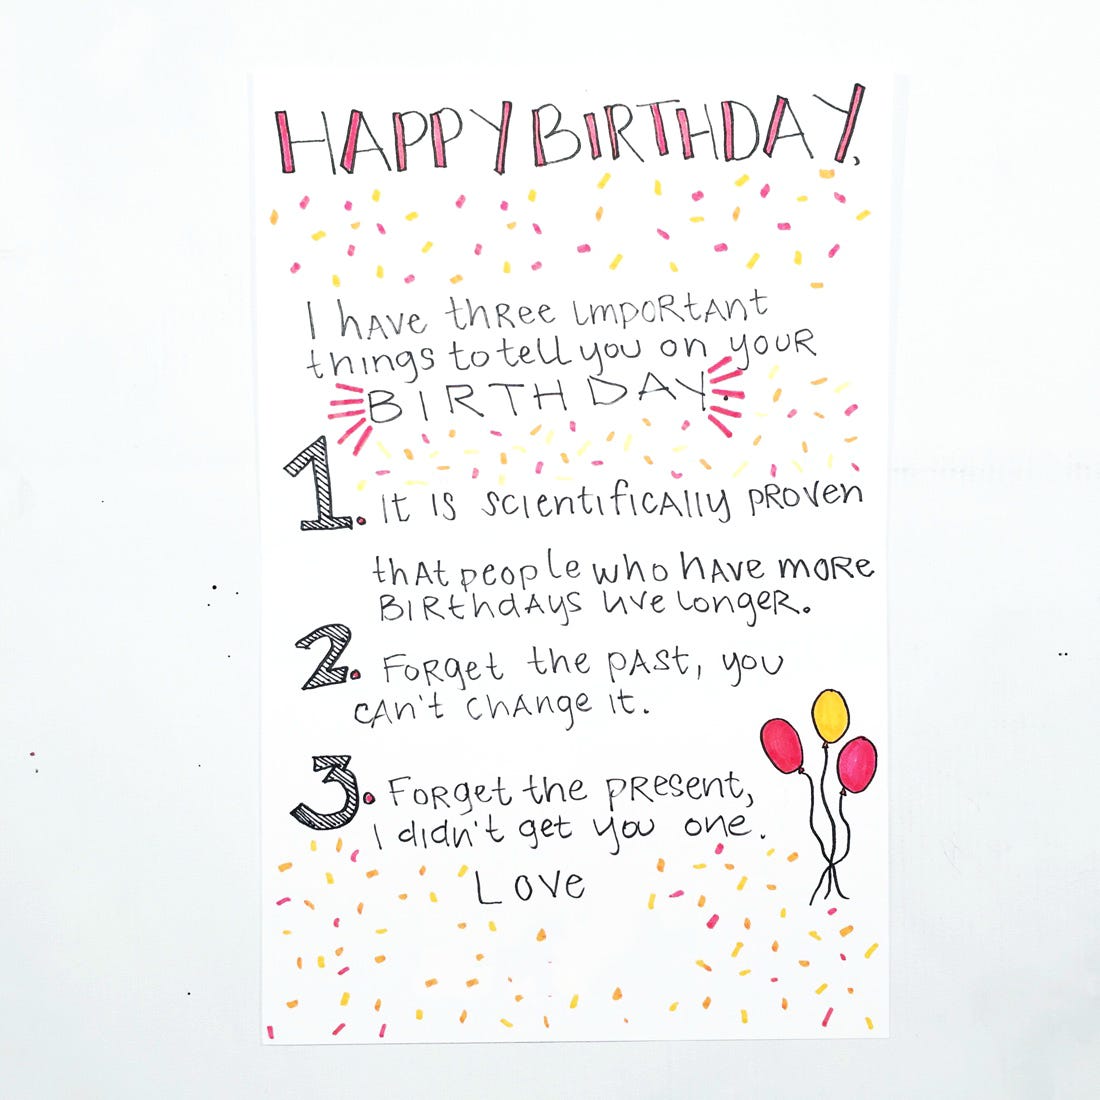 HAPPY BIRTHDAY,
I have three important
things to tell you on your
BIRTHDAY.
1. It is scientifically proven
that people who have more
Birthdays live longer.
2. Forget the past, you
can't change it.
3. Forget the present,
I didn't get you one.
Love